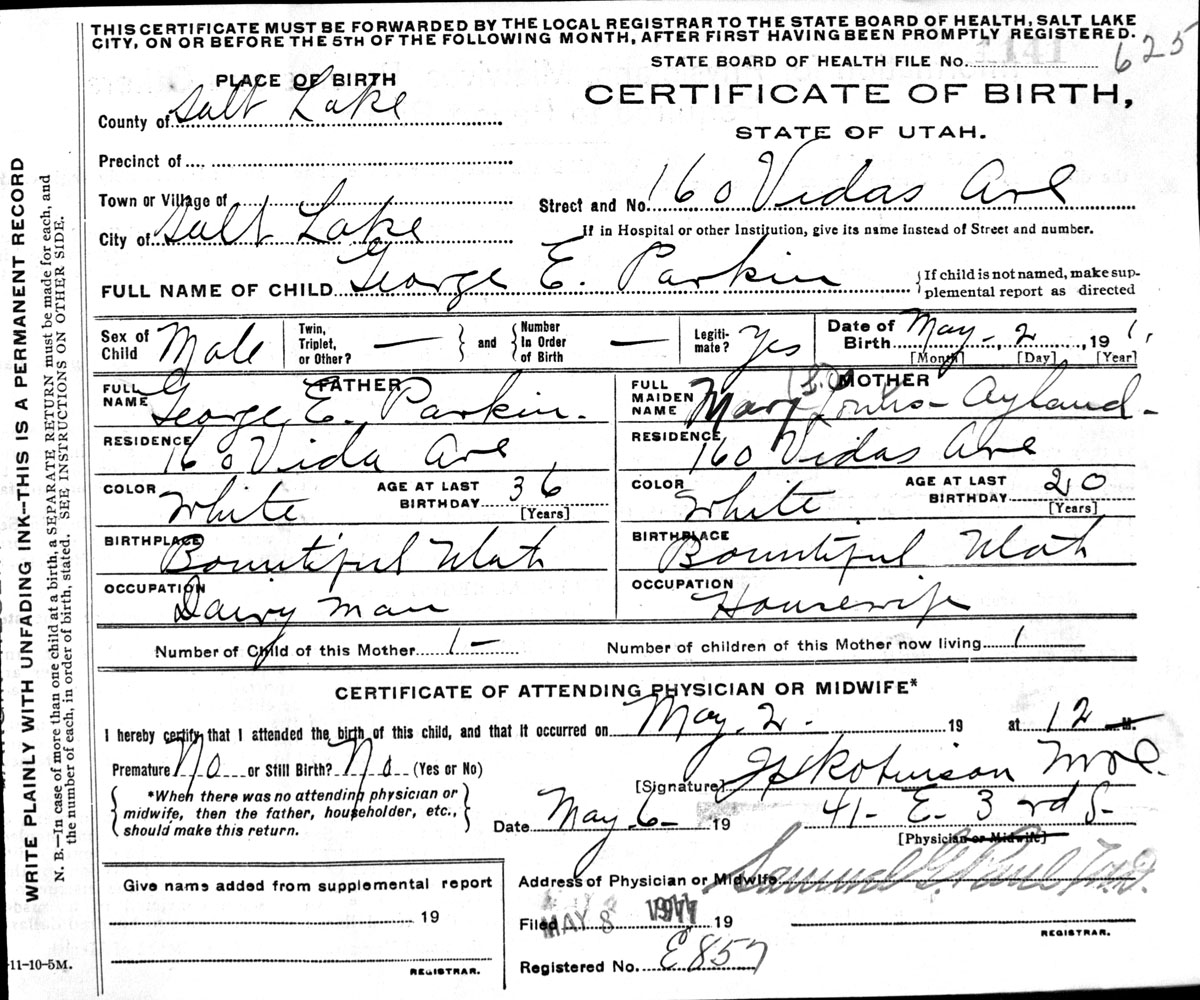 THIS CERTIFICATE MUST BE FORWARDED BY THE LOCAL REGISTRAR TO THE STATE BOARD OF HEALTH, SALT LAKE
CITY, ON OR BEFORE THE 5TH OF THE FOLLOWING MONTH, AFTER FIRST HAVING BEEN PROMPTLY REGISTERED.
STATE BOARD OF HEALTH FILE No. 625
PLACE OF BIRTH
CERTIFICATE OF BIRTH,
STATE OF UTAH.
County of Salt Lake
Precinct of
Town or Village of
Street and No. 160 Vidas Ave
City of Salt Lake
If in Hospital or other Institution, give its name instead of Street and number.
FULL NAME OF CHILD George E. Parkin
{If child is not named, make sup-
plemental report as directed
Sex of Child Male
Twin, Triplet, or Other? — } and { Number In Order of Birth —
Legiti-mate? Yes
Date of Birth May - 2, 191
[Month] [Day] [Year]
FATHER
FULL NAME George E. Parkin.
RESIDENCE 160 Vida Ave
COLOR White
AGE AT LAST BIRTHDAY 36
[Years]
BIRTHPLACE Bountiful Utah
OCCUPATION Dairy man
MOTHER
FULL MAIDEN NAME Mary Ayland -
RESIDENCE 160 Vidas Ave
COLOR White
AGE AT LAST BIRTHDAY 20
[Years]
BIRTHPLACE Bountiful Utah
OCCUPATION Housewife
Number of Child of this Mother 1 -
Number of children of this Mother now living 1
CERTIFICATE OF ATTENDING PHYSICIAN OR MIDWIFE*
I hereby certify that I attended the birth of this child, and that it occurred on May. 2 - 19 at 12 M.
Premature No or Still Birth? No (Yes or No)
[Signature] Robinson
*When there was no attending physician or
midwife, then the father, householder, etc.,
should make this return.
Date May - 6 - 19
41 - E. 3rd S -
[Physician or Midwife]
Address of Physician or Midwife
Give name added from supplemental report
19
REGISTRAR.
Filed MAY 8 19
REGISTRAR.
Registered No. E857
WRITE PLAINLY WITH UNFADING INK—THIS IS A PERMANENT RECORD
N. B.—In case of more than one child at a birth, a SEPARATE RETURN must be made for each, and
the number of each, in order of birth, stated. SEE INSTRUCTIONS ON OTHER SIDE.
11-10-5M.